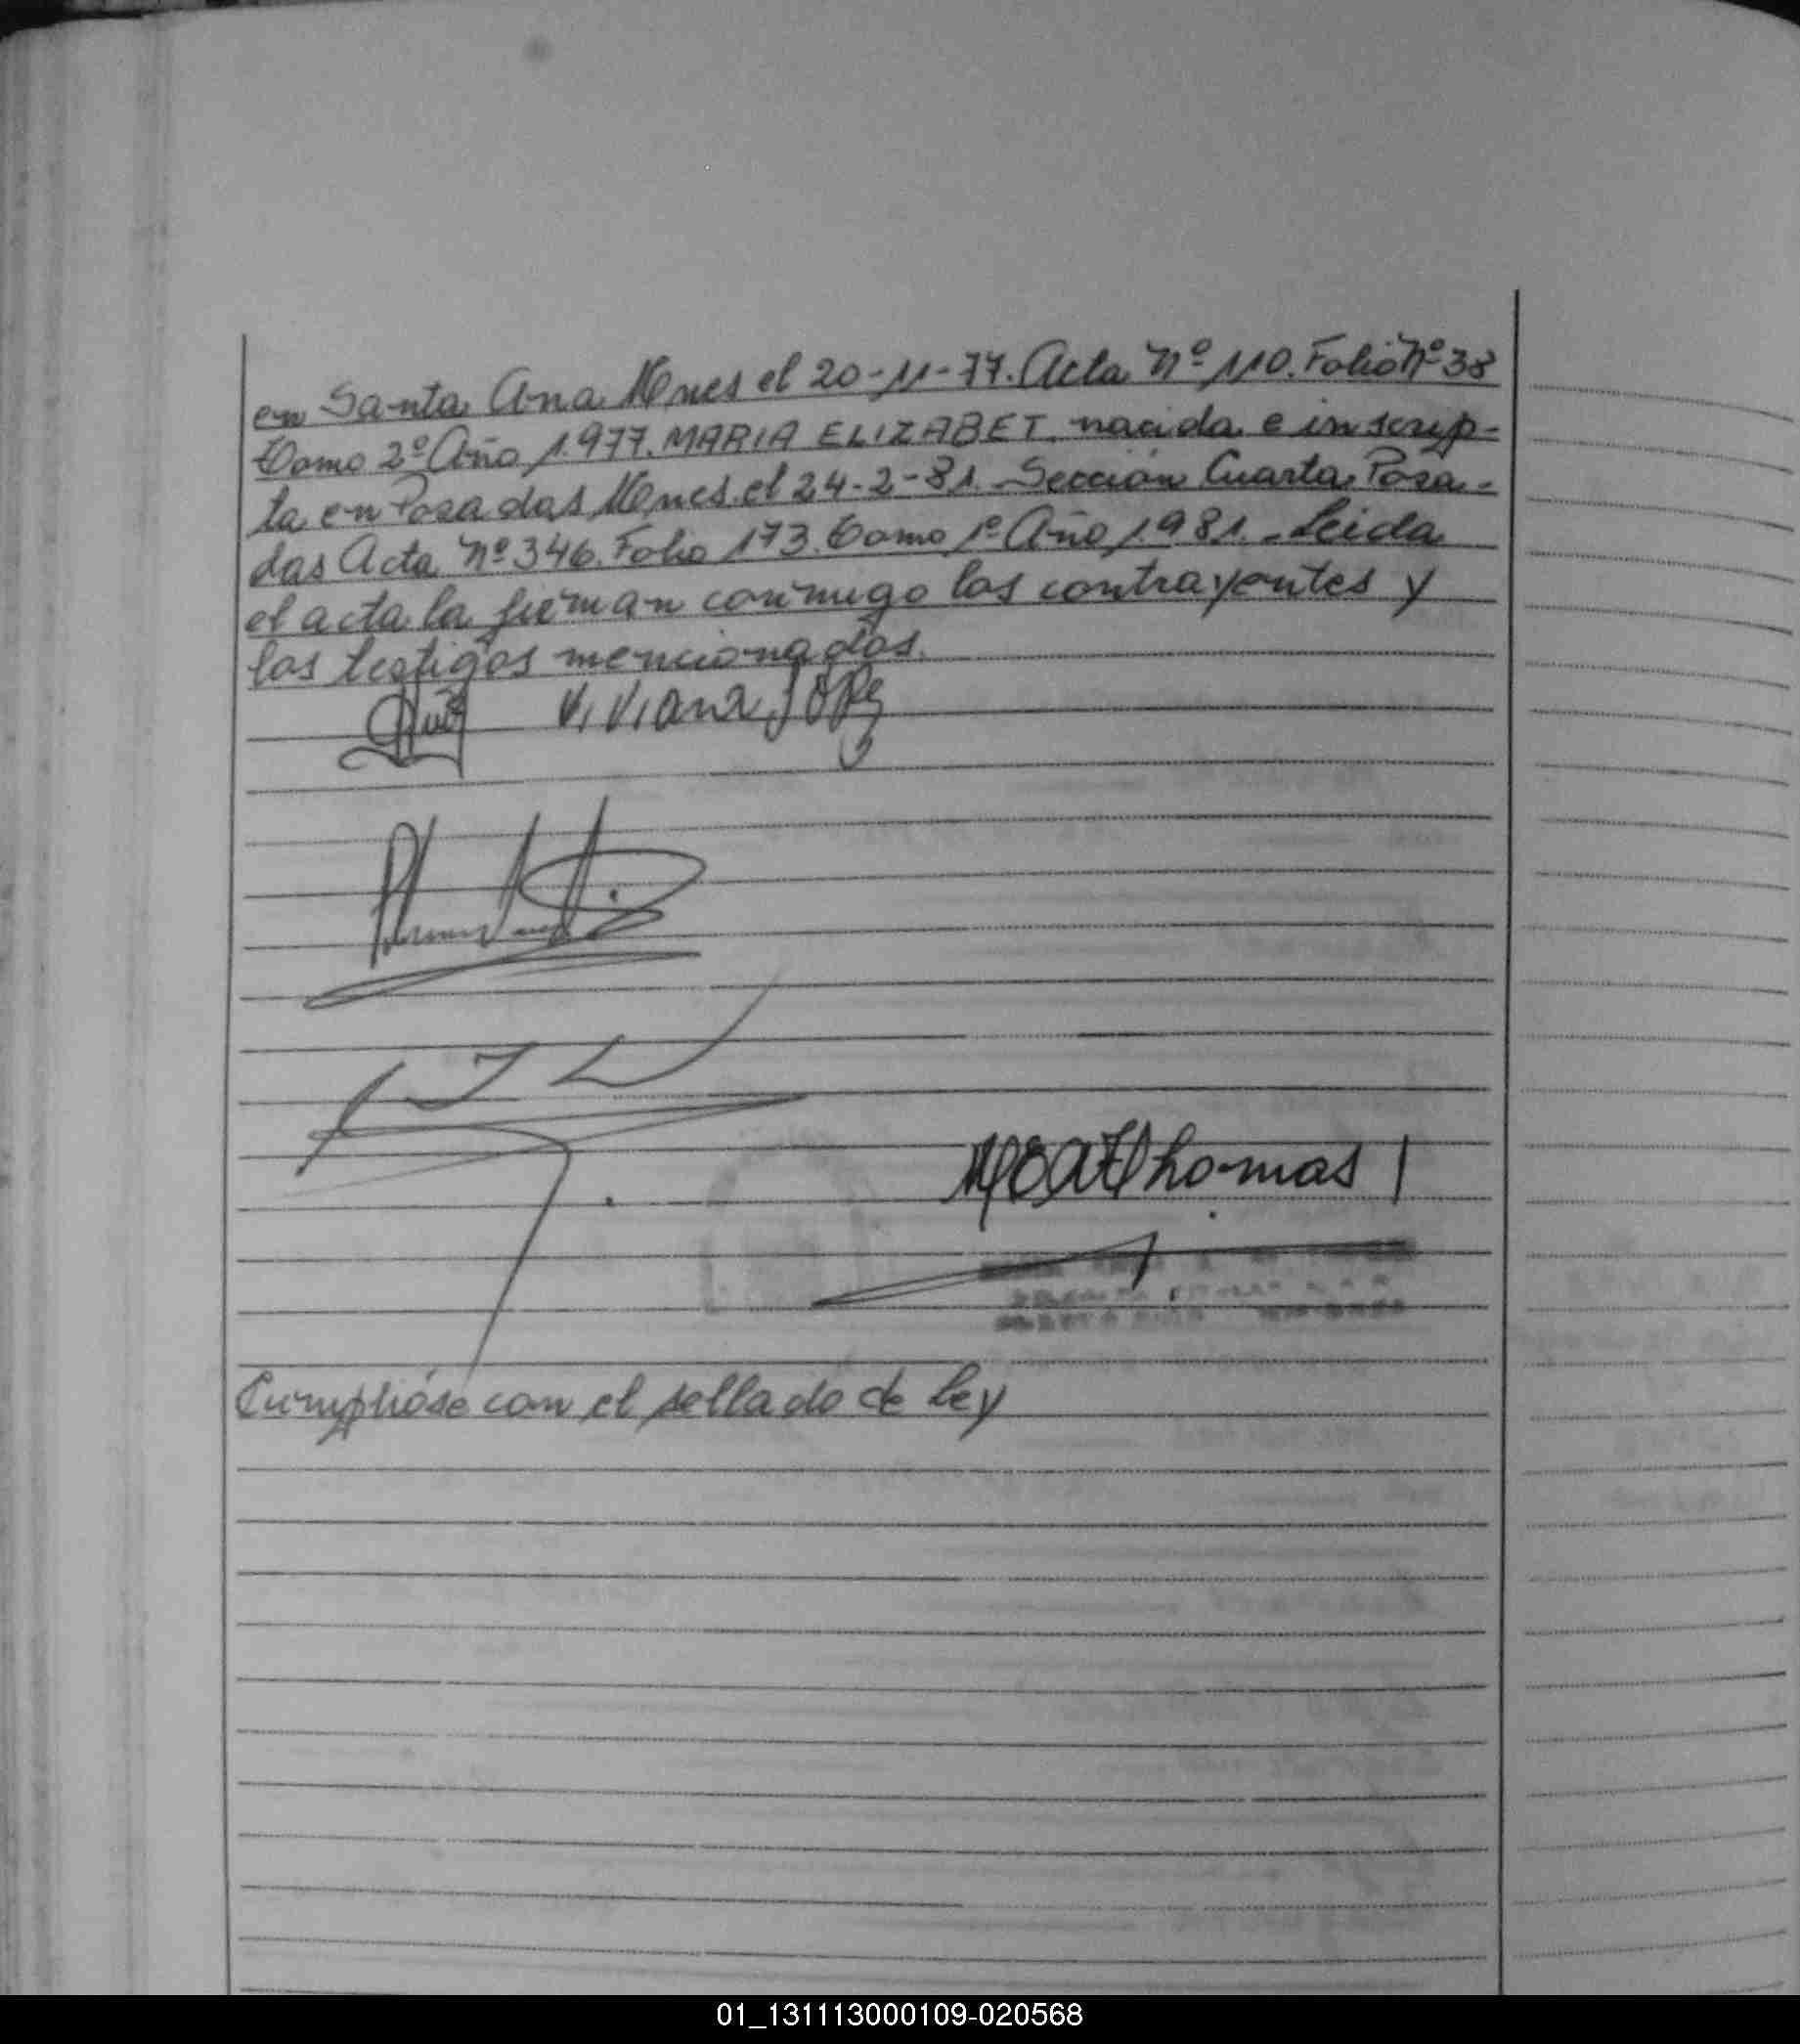 en Santa Ana Mnes el 20-11-77. Acta Nº 110. Folio Nº 38
Tomo 2º Año 1.977. MARIA ELIZABET. nacida e inscrip-
ta en Posadas Mnes. el 24-2-81. Sección Cuarta Posa-
das Acta Nº 346. Folio 173. Tomo 1º Año 1.981. - Leida
el acta la firman conmigo los contrayentes y
los testigos mencionados.
Viviana López
Thomas
Cumplióse con el sellado de ley
01_131113000109-020568